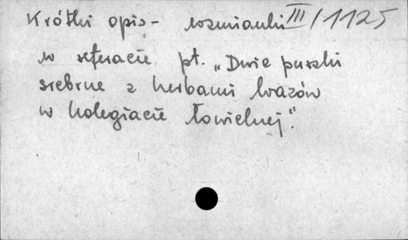 Krótki opis - wzmianki III/1125
w referacie pt. „Dwie puszki
srebrne z herbami Wazów
w kolegiacie łowickiej".